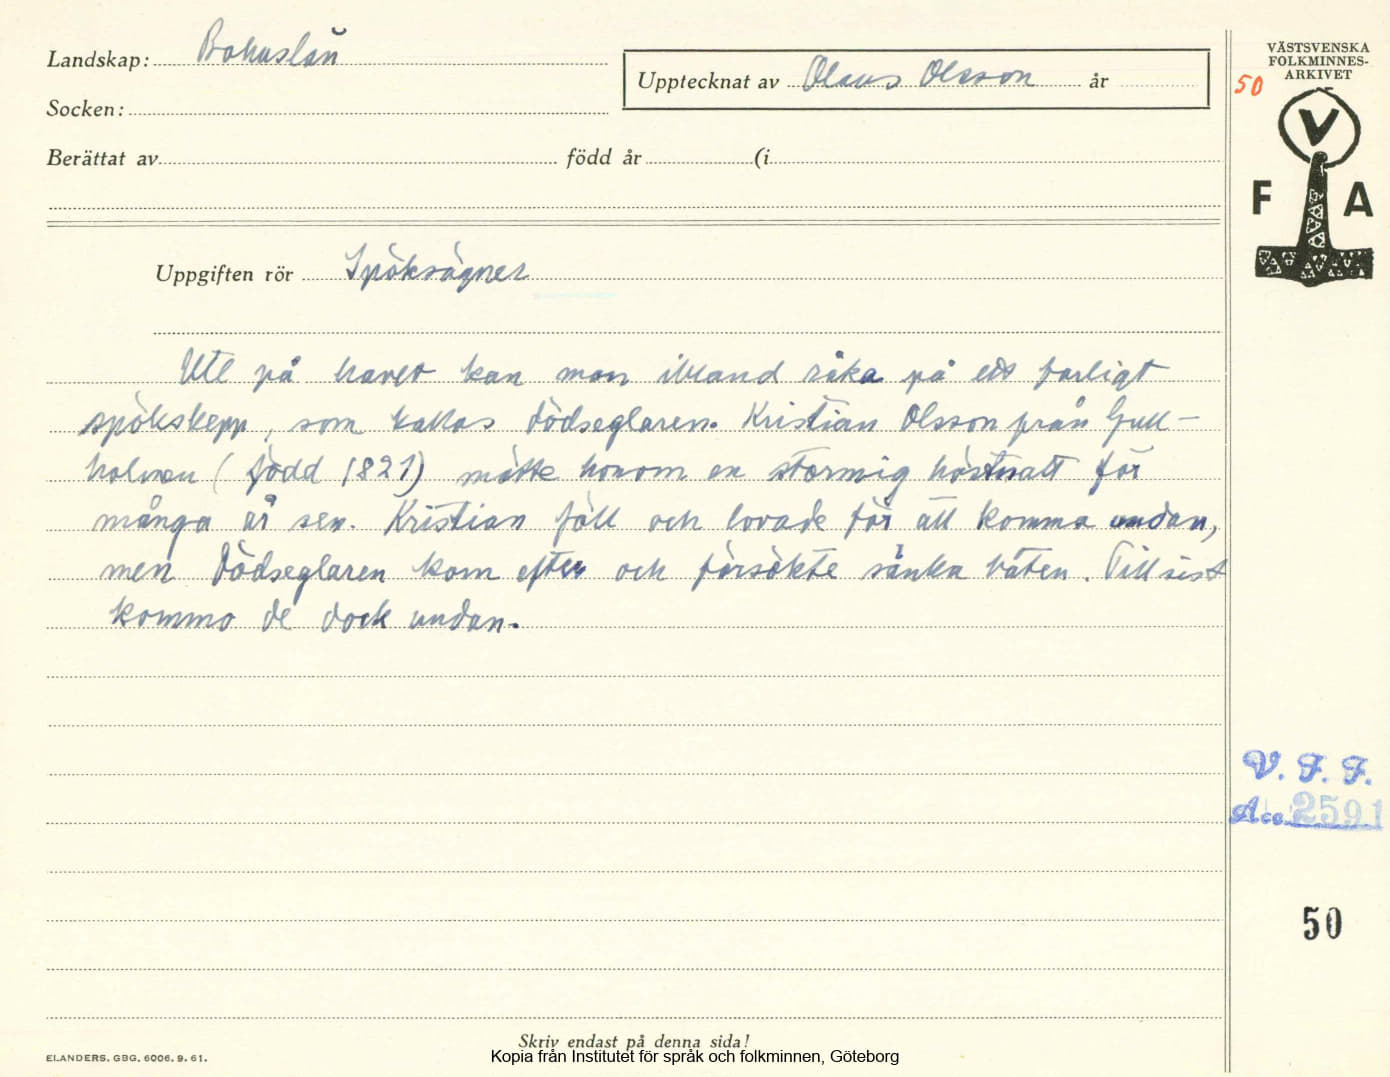 Landskap: Bohuslän
Upptecknat av Olaus Olsson år
VÄSTSVENSKA
FOLKMINNES-
ARKIVET
50
Socken:
V
F A
Berättat av född år (i
Uppgiften rör Spöksägner
Ute på havet kan man ibland råka på ett farligt
spökskepp, som kallas Dödseglaren. Kristian Olsson från Gull-
holmen (född 1821) mötte honom en stormig höstnatt för
många år sen. Kristian föll och lovade för att komma undan,
men Dödseglaren kom efter och försökte sänka båten. Till sist
kommo de dock undan.
V. F. F.
Acc. 2591
50
Skriv endast på denna sida!
ELANDERS, GBG, 6006. 9. 61.
Kopia från Institutet för språk och folkminnen, Göteborg